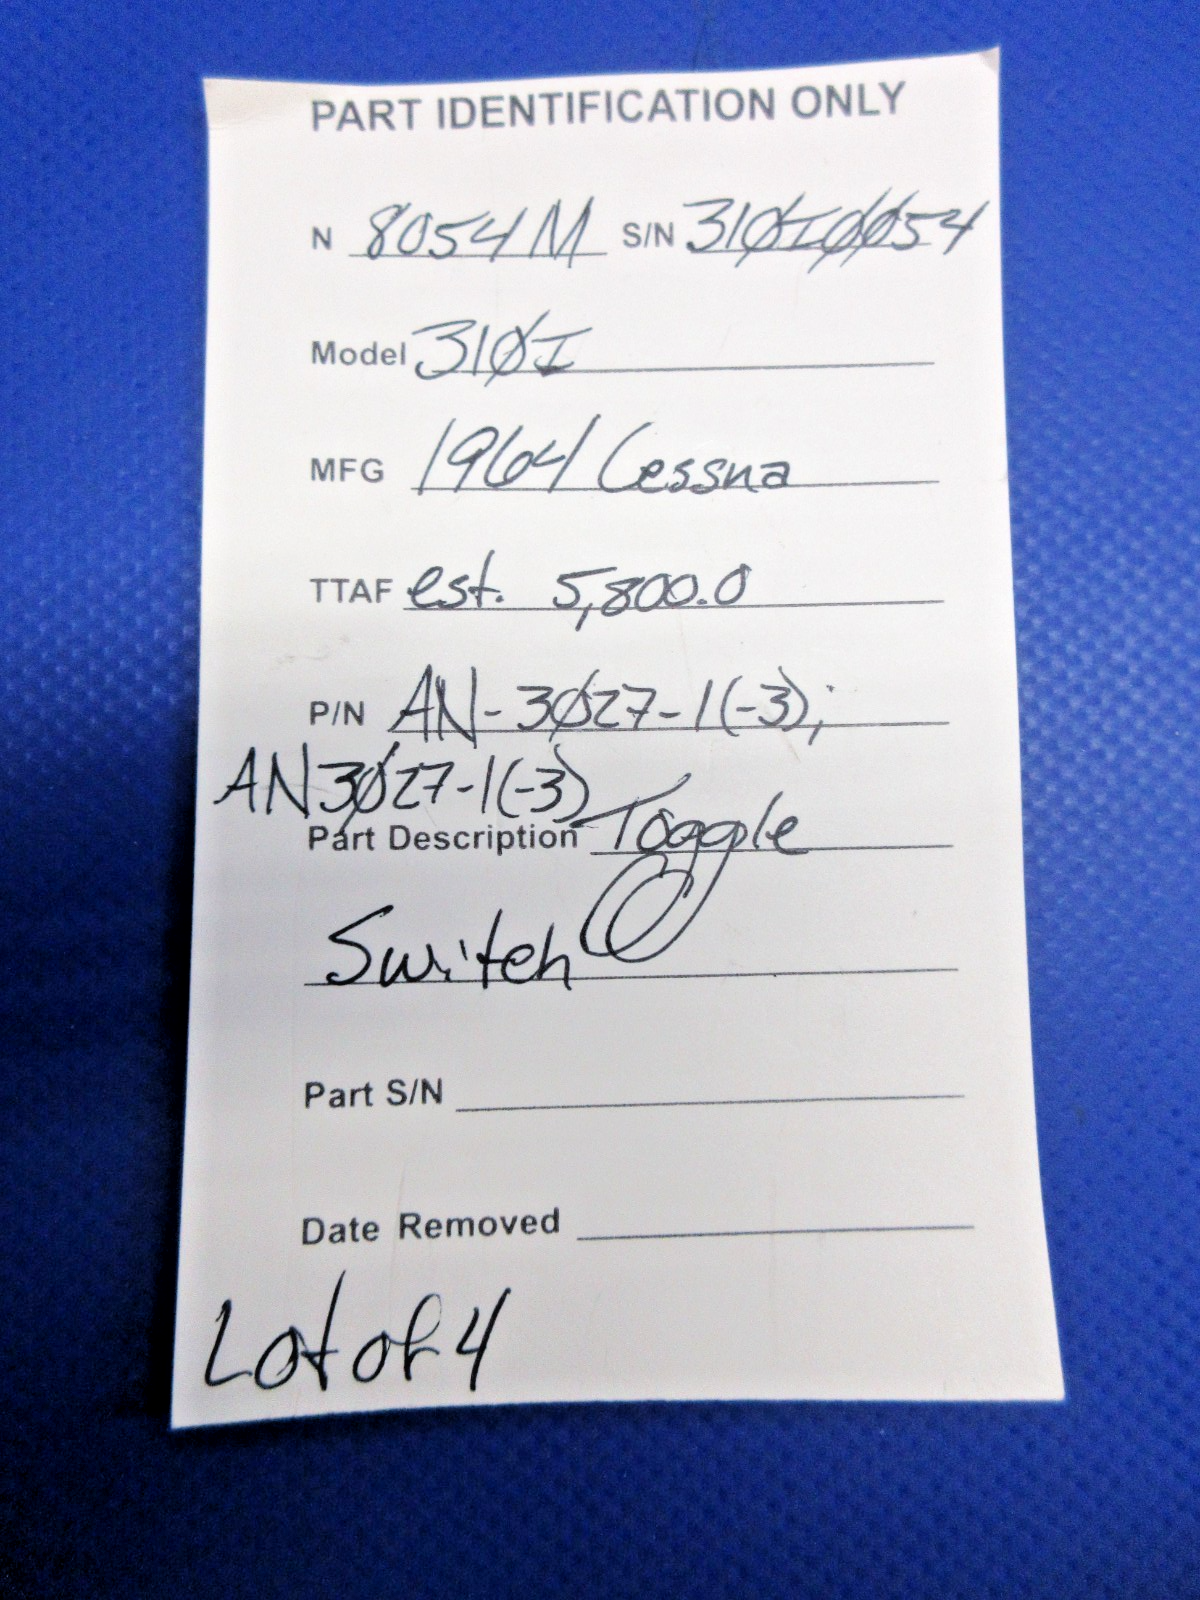 PART IDENTIFICATION ONLY
N 8054M S/N 310I0054
Model 310I
MFG 1964 Cessna
TTAF est. 5,800.0
P/N AN-3027-1(-3);
AN3027-1(-3)
Part Description Toggle
Switch
Part S/N
Date Removed
Lot of 4